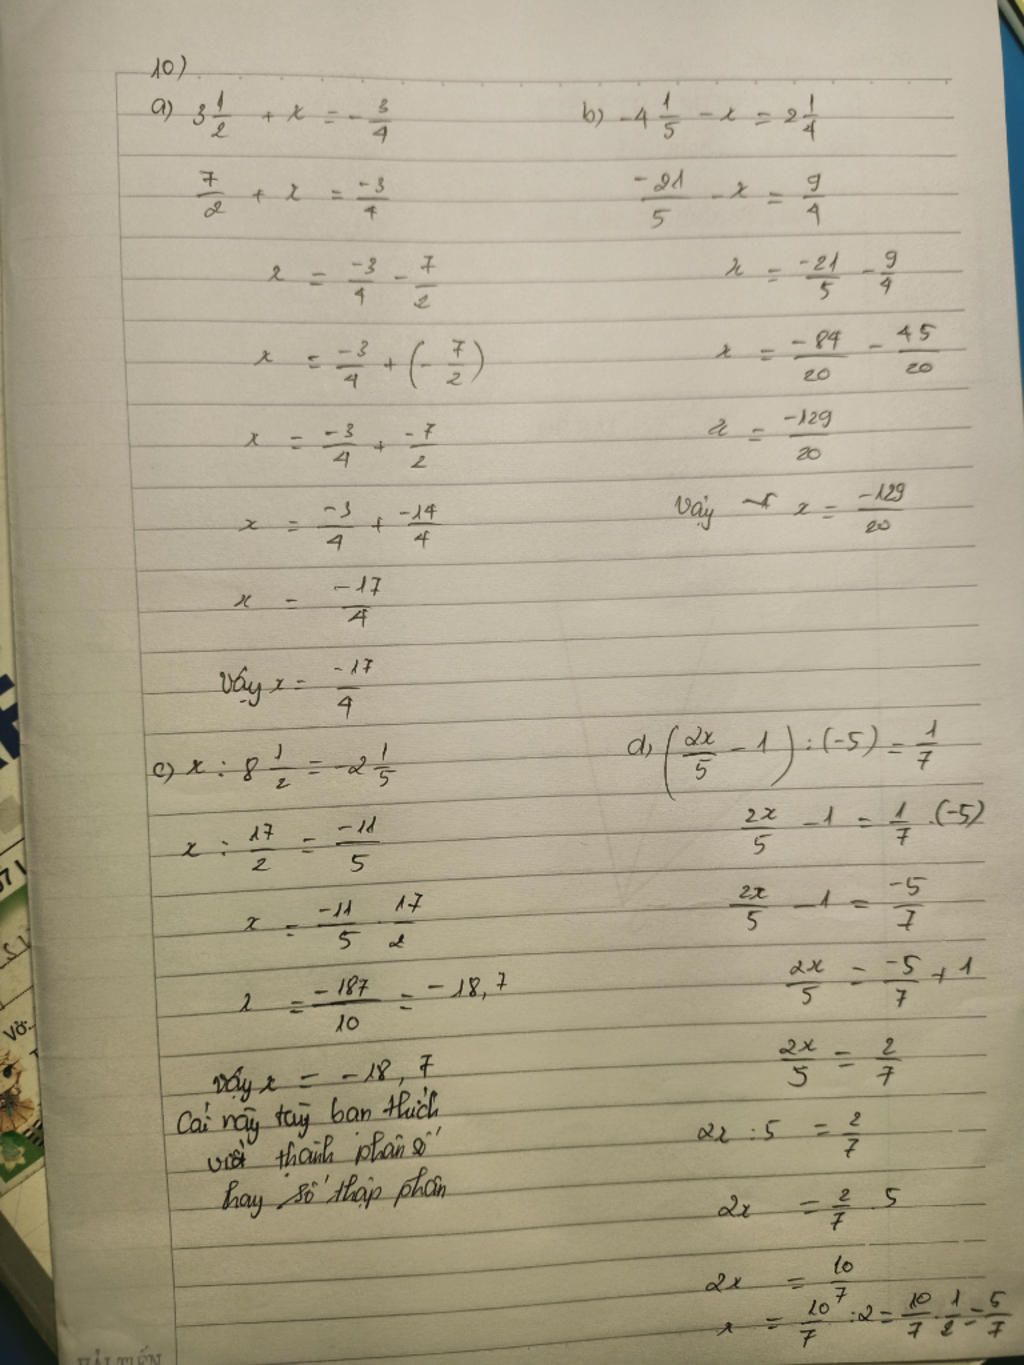 10)
a) 3 1/2 + x = - 3/4
7/2 + x = -3/4
x = -3/4 - 7/2
x = -3/4 + (- 7/2)
x = -3/4 + -7/2
x = -3/4 + -14/4
x = -17/4
Vậy x = -17/4
b) -4 1/5 - x = 2 1/4
-21/5 - x = 9/4
x = -21/5 - 9/4
x = -84/20 - 45/20
x = -129/20
Vậy x = -129/20
c) x : 8 1/2 = -2 1/5
x : 17/2 = -11/5
x = -11/5 . 17/2
x = -187/10 = -18,7
Vậy x = -18,7
Cái này tùy bạn thích
viết thành phân số
hay số thập phân
d) (2x/5 - 1) : (-5) = 1/7
2x/5 - 1 = 1/7 . (-5)
2x/5 - 1 = -5/7
2x/5 = -5/7 + 1
2x/5 = 2/7
2x : 5 = 2/7
2x = 2/7 . 5
2x = 10/7
x = 10/7 : 2 = 10/7 . 1/2 = 5/7
HẢI TIẾN